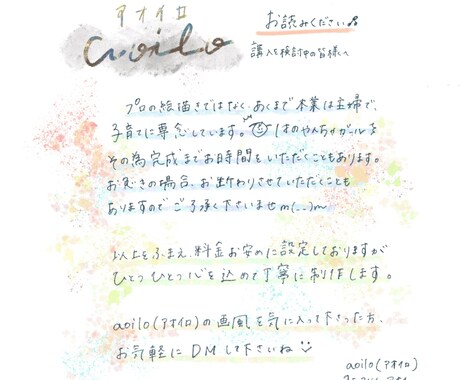 アオイロ
aoilo
お読みください
購入を検討中の皆様へ
プロの絵描きではなく、あくまで本業は主婦で、
子育てに専念しています。1才のやんちゃガールを
その為完成までお時間をいただくこともあります。
お急ぎの場合、お断わりさせていただくことも
ありますのでご了承下さいませm(__)m
以上をふまえ、料金お安めに設定しておりますが
ひとつひとつ心を込めて丁寧に制作します。
aoilo(アオイロ)の画風を気に入って下さった方、
お気軽にDMして下さいね
aoilo(アオイロ)